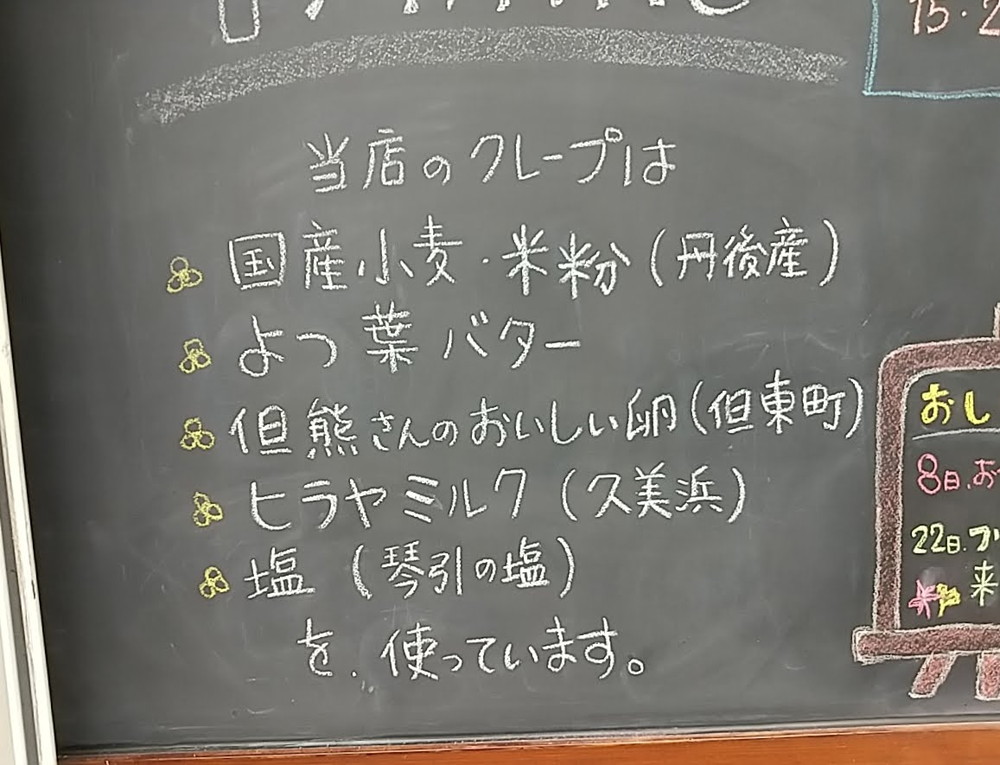 15・2
当店のクレープは
国産小麦・米粉(丹後産)
よつ葉バター
但熊さんのおいしい卵(但東町)
ヒラヤミルク(久美浜)
塩(琴引の塩)
を、使っています。
おし
8日、お
22日、
来